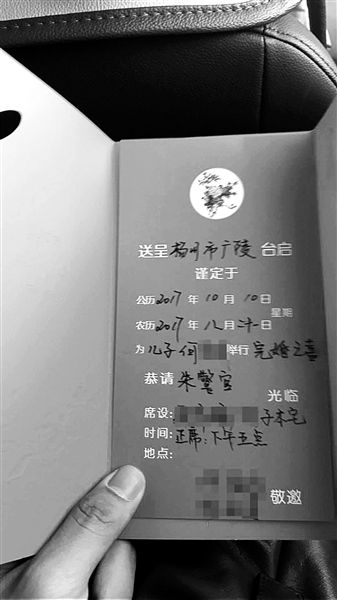 送呈 扬州市广陵 台启
谨定于
公历 2017 年 10 月 10 日
星期
农历 2017 年 八 月 二十一 日
为 儿子 何 举行 完婚之喜
恭请 朱警官
光临
席设: 子本宅
时间: 正席:下午五点
地点:
敬邀